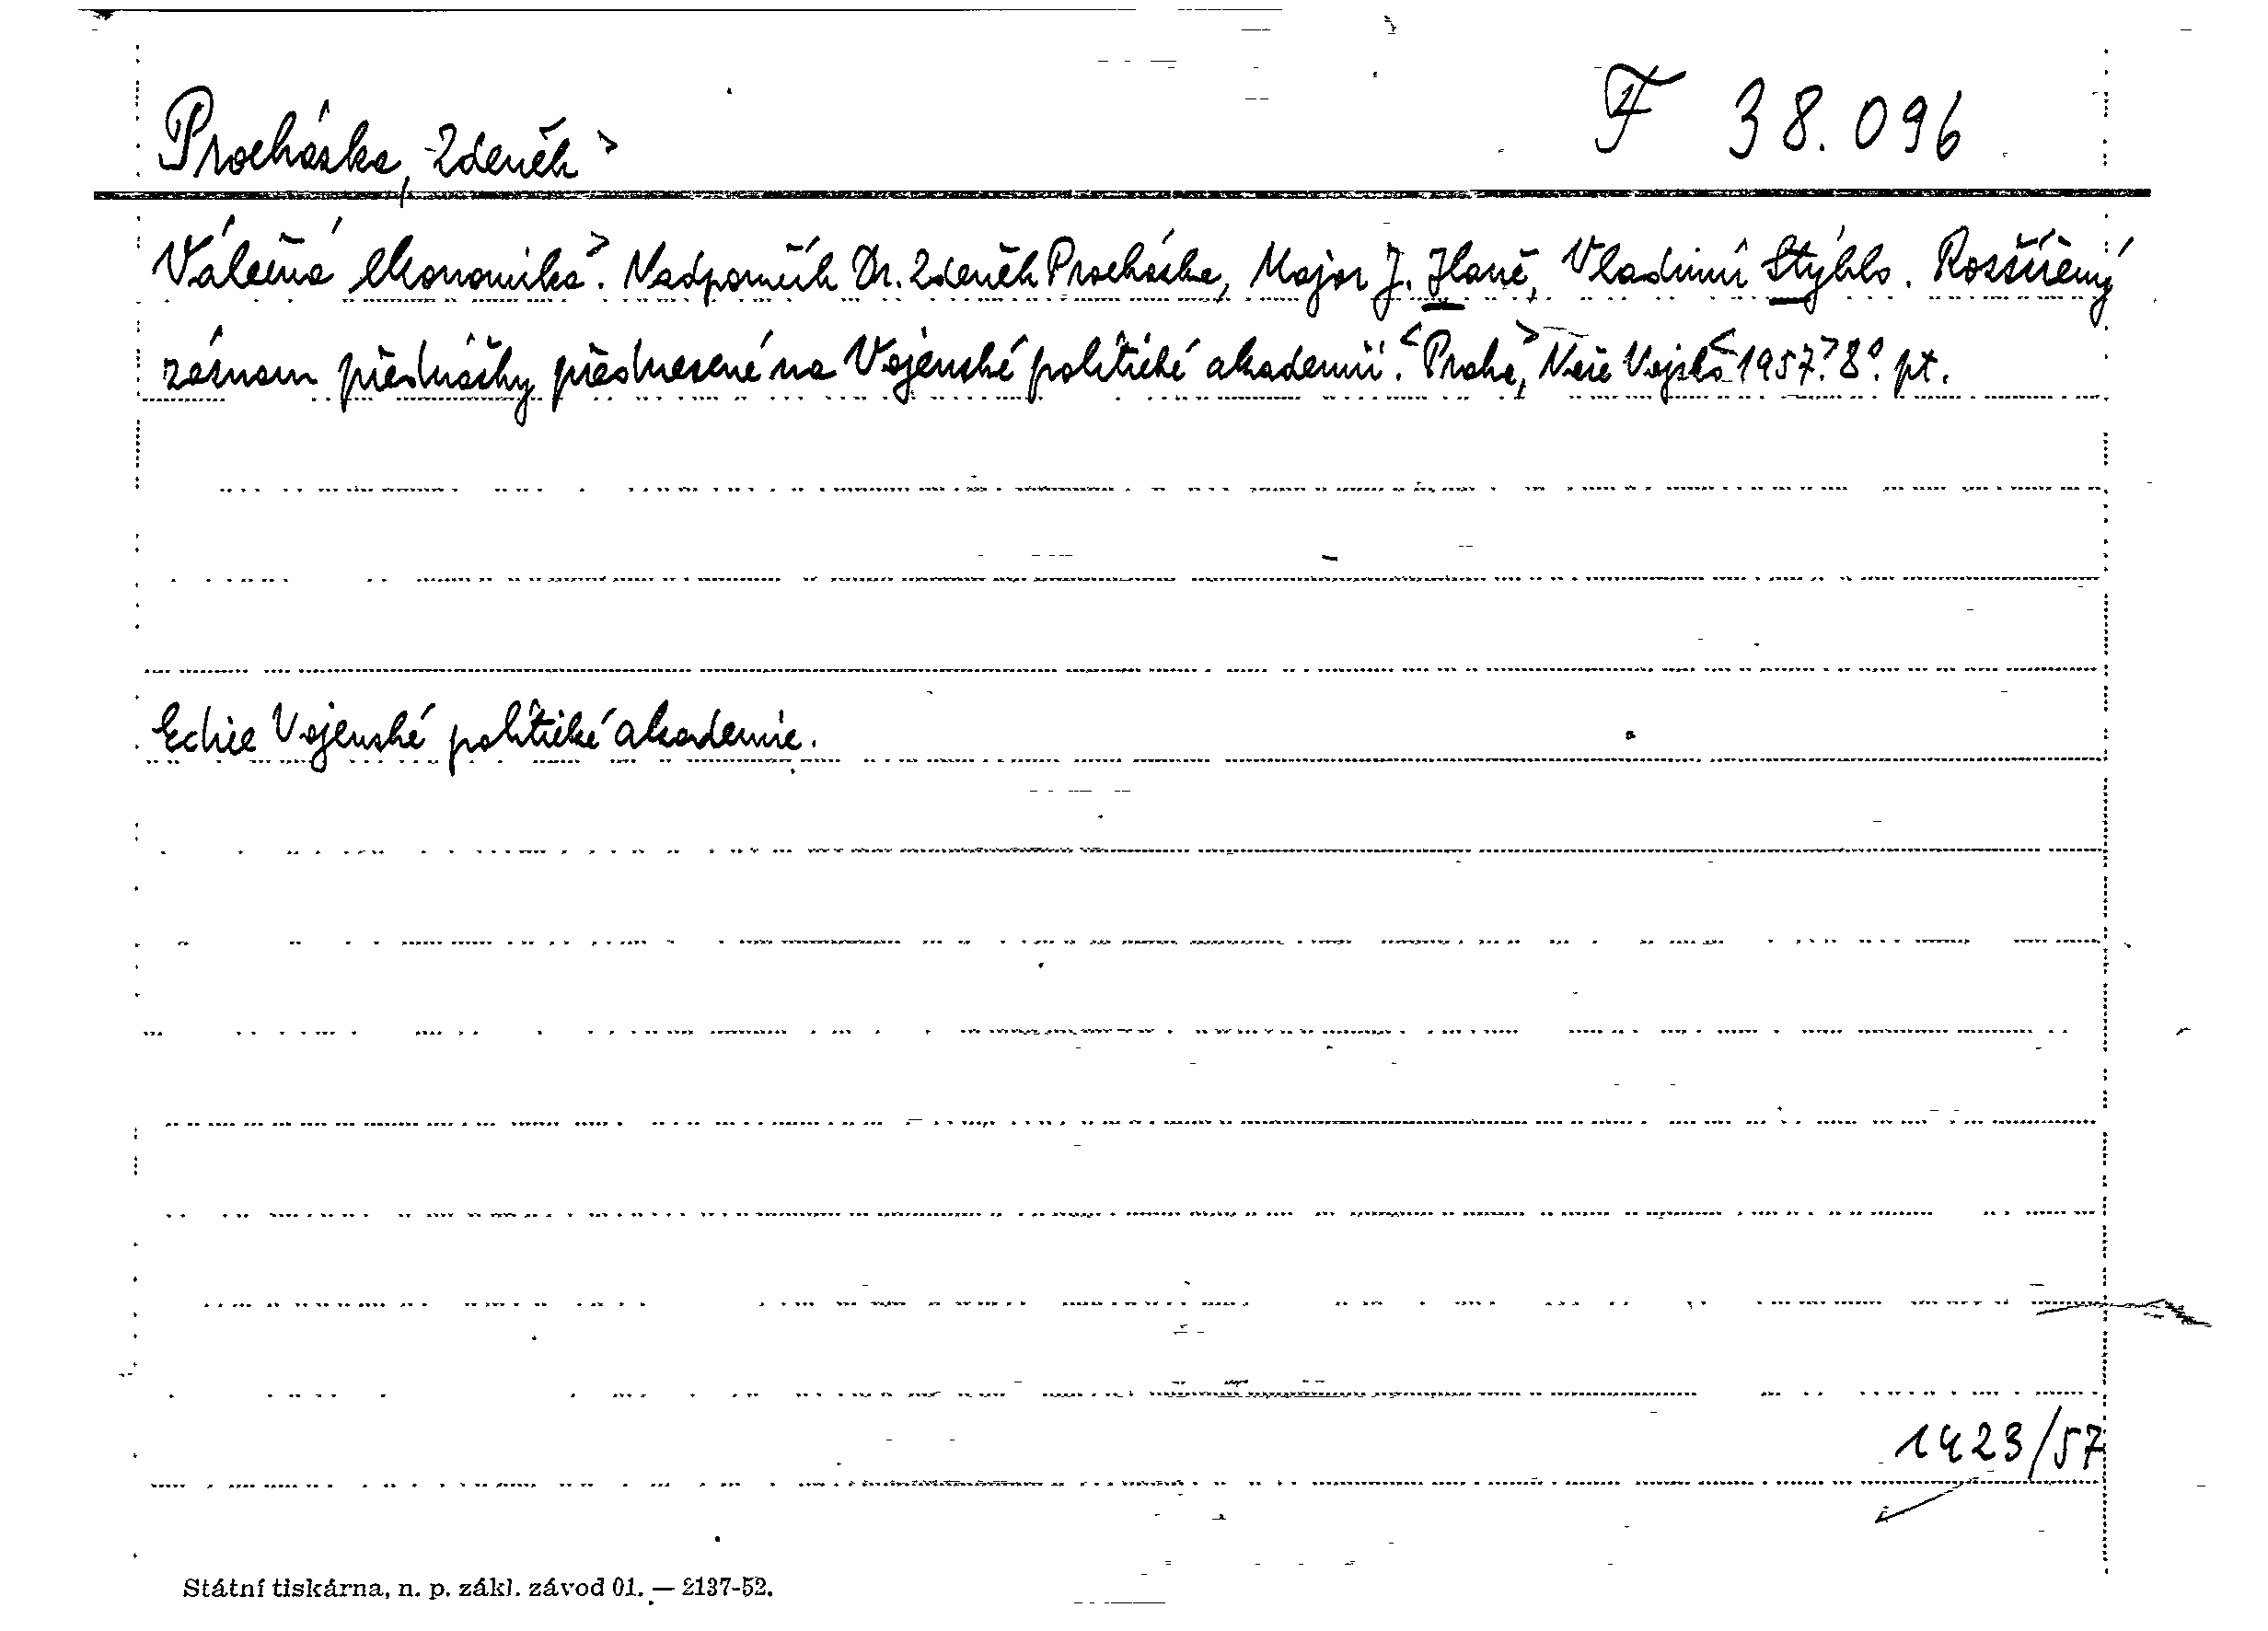 Procházka, Zdeněk> F 38.096
Válečná ekonomika>. Nadporučík Dr. Zdeněk Procházka, Major J. Haně, Vladimír Stýblo. Rozšířený
záznam přednášky přednesené na Vojenské politické akademii. <Praha,> Naše Vojsko <1957.> 8°. pt.
Edice Vojenské politické akademie.
1423/57
Státní tiskárna, n. p. zákl. závod 01. — 2137-52.